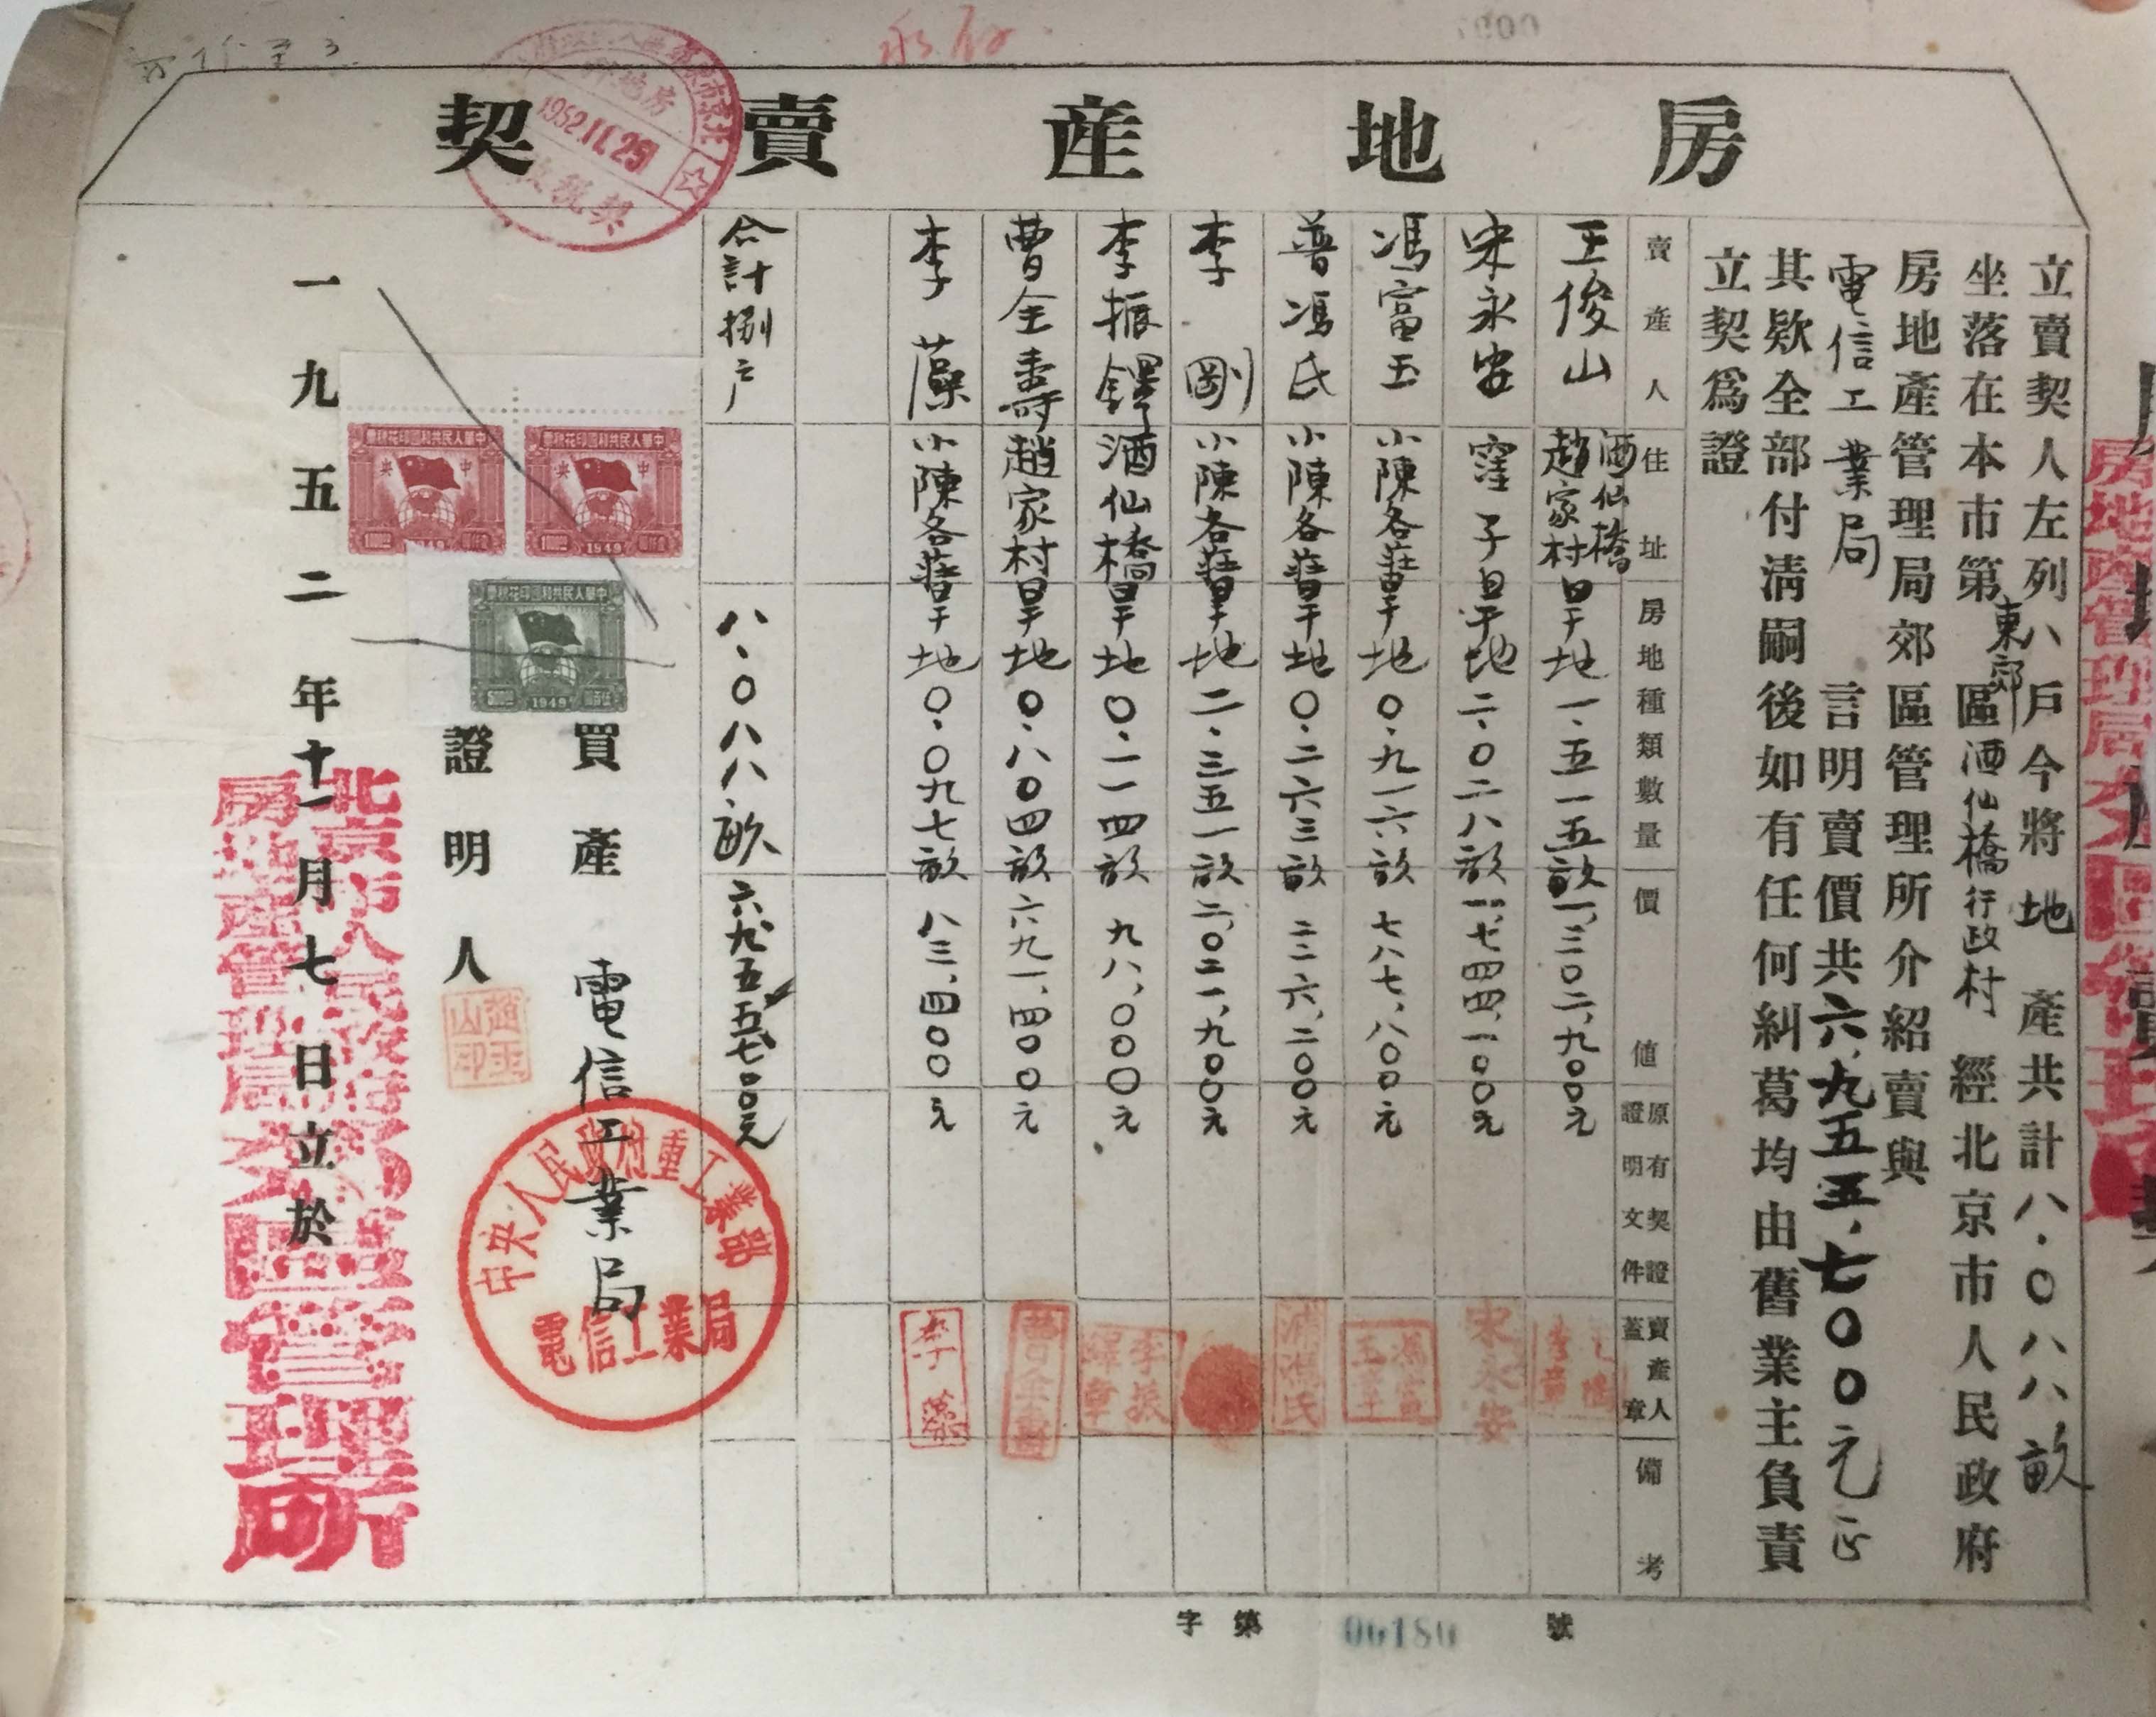 房地産賣契
立賣契人左列八戶今將地產共計八.〇八八畝
坐落在本市第東郊區酒仙橋行政村 經北京市人民政府
房地產管理局郊區管理所介紹賣與
電信工業局 言明賣價共六、九五五、七〇〇元正
其欵全部付淸嗣後如有任何糾葛均由舊業主負責
立契爲證
賣產人 住址 房地種類數量 價値 原有契證證明文件 賣產人蓋章 備考
王俊山 酒仙橋趙家村 旱地一.五一五畝 一、三〇二、九〇〇元
宋永安 窪子 旱地二.〇二八畝 一、七四四、一〇〇元 宋永安
馮富玉 小陳各莊 旱地〇.九一六畝 七八七、八〇〇元
普馮氏 小陳各莊 旱地〇.二六三畝 二二六、二〇〇元
李剛 小陳各莊 旱地二.三五一畝 二、〇二一、九〇〇元
李振鐸 酒仙橋 旱地〇.一一四畝 九八、〇〇〇元
曹全壽 趙家村 旱地〇.八〇四畝 六九一、四〇〇元 曹全壽
李藻 小陳各莊 旱地〇.〇九七畝 八三、四〇〇元 李藻
合計捌戶 八.〇八八畝 六、九五五、七〇〇元
買產 電信工業局
中央人民政府重工業部
電信工業局
證明人
趙玉山印
一九五二年十一月七日立於
北京市人民政府郊區管理所
房地產管理局
1952.11.25
契稅
中華人民共和國印花稅票
中央
1949
中華人民共和國印花稅票
中央
1949
中華人民共和國印花稅票
1949
字第 06180 號